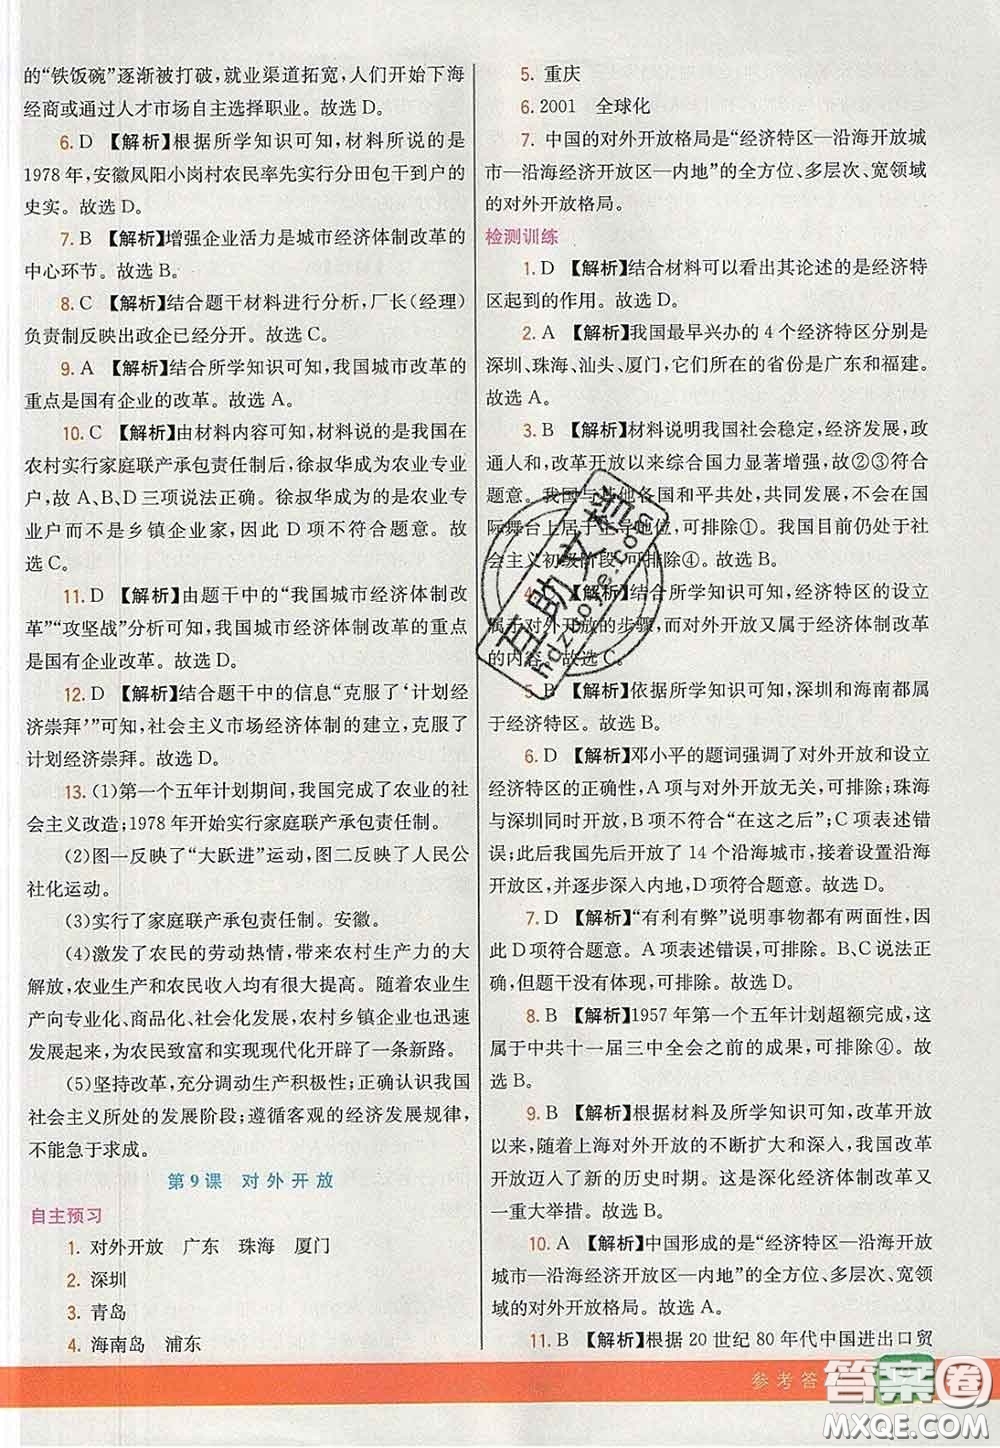 的“铁饭碗”逐渐被打破，就业渠道拓宽，人们开始下海
经商或通过人才市场自主选择职业。故选 D。
6. D 【解析】根据所学知识可知，材料所描述的是
1978 年，安徽凤阳小岗村农民率先实行分田包干到户的
史实。故选 D。
7. B 【解析】增强企业活力是城市经济体制改革的
中心环节。故选 B。
8. C 【解析】结合题干材料进行分析，厂长（经理）
负责制反映出政企已经分开。故选 C。
9. A 【解析】结合所学知识可知，我国城市改革的
重点是国有企业的改革。故选 A。
10. C 【解析】由材料内容可知，材料说的是我国在
农村实行家庭联产承包责任制后，徐叔华成为农业专业
户，故 A、B、D 三项说法正确。徐叔华成为的是农业专
业户而不是乡镇企业家，因此 D 项不符合题意。故
选 C。
11. D 【解析】由题干中的“我国城市经济体制改
革”“攻坚战”分析可知，我国城市经济体制改革的重点
是国有企业改革。故选 D。
12. D 【解析】结合题干中的信息“克服了‘计划经
济崇拜’”可知，社会主义市场经济体制的建立，克服了
计划经济崇拜。故选 D。
13. (1)第一个五年计划期间，我国完成了农业的社
会主义改造；1978 年开始实行家庭联产承包责任制。
(2)图一反映了“大跃进”运动，图二反映了人民公
社化运动。
(3)实行了家庭联产承包责任制。安徽。
(4)激发了农民的劳动热情，带来农村生产力的大
解放，农业生产和农民收入均有很大提高。随着农业生
产向专业化、商品化、社会化发展，农村乡镇企业也迅速
发展起来，为农民致富和实现现代化开辟了一条新路。
(5)坚持改革，充分调动生产积极性；正确认识我国
社会主义所处的发展阶段；遵循客观的经济发展规律，
不能急于求成。
第 9 课 对外开放
自主预习
1. 对外开放 广东 珠海 厦门
2. 深圳
3. 青岛
4. 海南岛 浦东
5. 重庆
6. 2001 全球化
7. 中国的对外开放格局是“经济特区—沿海开放城
市—沿海经济开放区—内地”的全方位、多层次、宽领域
的对外开放格局。
检测训练
1. D 【解析】结合材料可以看出其论述的是经济特
区起到的作用。故选 D。
2. A 【解析】我国最早兴办的 4 个经济特区分别是
深圳、珠海、汕头、厦门，它们所在的省份是广东和福建。
故选 A。
3. B 【解析】材料说明我国社会稳定，经济发展，政
通人和，改革开放以来综合国力显著增强，故②③符合
题意。我国与其他各国和平共处，共同发展，不存在在国
际舞台上居于主导地位，可排除①。我国目前仍处于社
会主义初级阶段，可排除④。故选 B。
4. 【解析】结合所学知识可知，经济特区的设立
属于对外开放的步骤，而对外开放又属于经济体制改革
的内容。故选 C。
5. B 【解析】依据所学知识可知，深圳和海南都属
于经济特区。故选 B。
6. D 【解析】邓小平的题词强调了对外开放和设立
经济特区的正确性，A 项与对外开放无关，可排除；珠海
与深圳同时开放，B 项不符合“在这之后”；C 项表述错
误；此后我国先后开放了 14 个沿海城市，接着设置沿海
开放区，并逐步深入内地，D 项符合题意。故选 D。
7. D 【解析】“有利有弊”说明事物都有两面性，因
此 D 项符合题意。A 项表述错误，可排除。B、C 说法正
确，但题干没有体现，可排除。故选 D。
8. B 【解析】1957 年第一个五年计划超额完成，这
属于中共十一届三中全会之前的成果，可排除④。故
选 B。
9. B 【解析】根据材料及所学知识可知，改革开放
以来，随着上海对外开放的不断扩大和深入，我国改革
开放迈入了新的历史时期。这是深化经济体制改革的又
一重大举措。故选 B。
10. A 【解析】中国形成的是“经济特区—沿海开放
城市—沿海经济开放区—内地”的全方位、多层次、宽领域
的对外开放格局。故选 A。
11. B 【解析】根据 20 世纪 80 年代中国进出口贸
参考答
互助文档
hdzuoye.com
答案圈
MXQE.COM